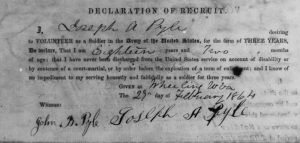 DECLARATION OF RECRUIT.
I, Joseph A Pyle desiring
to VOLUNTEER as a Soldier in the Army of the United States, for the term of THREE YEARS,
Do declare, That I am Eighteen years and Two months
of age; that I have never been discharged from the United States service on account of disability or
by sentence of a court-martial, or by order before the expiration of a term of enlistment; and I know of
no impediment to my serving honestly and faithfully as a soldier for three years.
GIVEN at Wheeling W.Va
The 29th day of February 1864
Witness:
John B. Pyle Joseph A Pyle